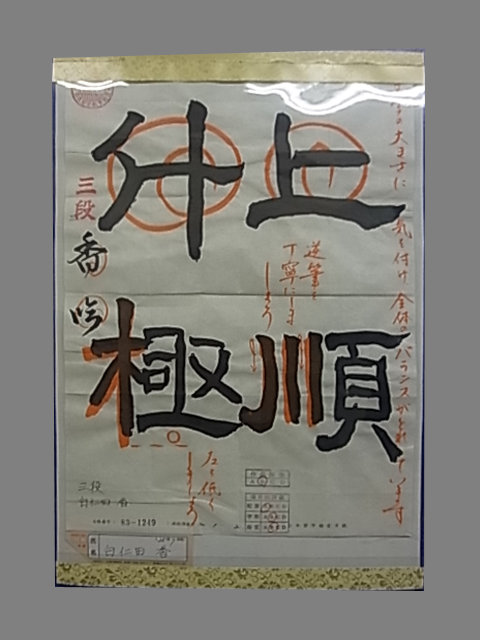 大きさに気を付け全体のバランスがとれています
上順
逆筆を
丁寧にしま
しょう
左を低く
しましょう
斗極
三段
香吟
三段
白仁田 香
83-1249
氏名 白仁田 香